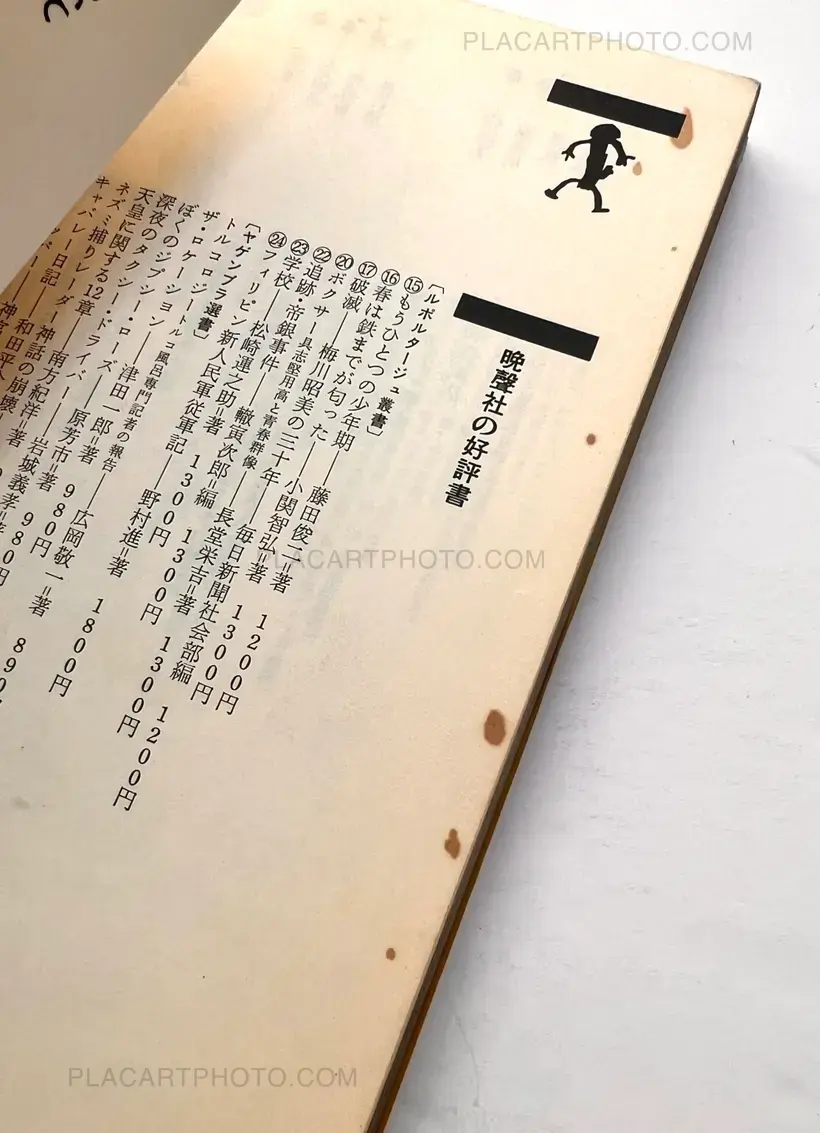 晩聲社の好評書
〔ルポルタージュ叢書〕
⑮もうひとつの少年期——藤田俊二=著 1200円
⑯春は鉄までが匂った——小関智弘=著 1300円
⑰破滅——梅川昭美の三十年——毎日新聞社会部編 1200円
⑳ボクサー 具志堅用高と青春群像——長堂栄吉=著 1300円
㉒追跡・帝銀事件——轍寅次郎=編 1300円
㉓学校——松崎運之助=著 1300円
㉔フィリピン新人民軍従軍記——野村進=著
〔ヤゲンブラ選書〕
トルコロジー トルコ風呂専門記者の報告——広岡敬一=著 1800円
ザ・ロケーション——津田一郎=著
ぼくのジプシー・ローズ——原芳市=著 980円
深夜のタクシー・ドライバー——
天皇に関する12章——南方紀洋=著 980円
ネズミ捕りレーダー神話の崩壊
キャバレー日記——和田平介
PLACARTPHOTO.COM
PLACARTPHOTO.COM
PLACARTPHOTO.COM